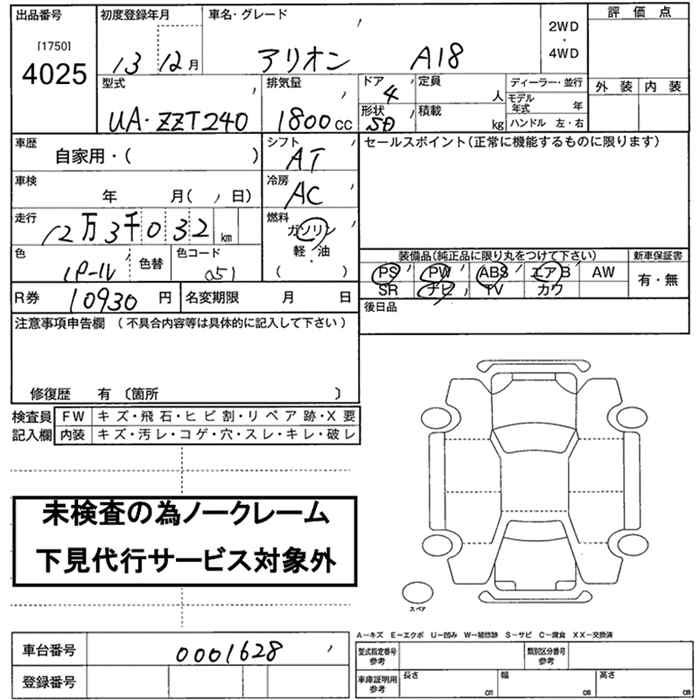 出品番号 初度登録年月 車名・グレード 2WD・4WD 評価点
[1750]
4025 13 12月 アリオン A18
外装 内装
型式 排気量 ドア 定員 人 ディーラー・並行
UA-ZZT240 1800cc 4 モデル年式 年
形状 SD 積載 kg ハンドル 左・右
車歴 シフト セールスポイント(正常に機能するものに限ります)
自家用・( ) AT
車検 冷房
年 月( 日) AC
走行 燃料
12万3千032km ガソリン
軽・油
( )
色 色替 色コード 装備品(純正品に限り丸をつけて下さい) 新車保証書
パール 051 PS PW ABS エアB AW 有・無
SR ナビ TV カワ
R券 10930円 名変期限 月 日 後日品
注意事項申告欄 (不具合内容等は具体的に記入して下さい)
修復歴 有 〔箇所 〕
検査員記入欄 FW キズ・飛石・ヒビ割・リペア跡・X要
内装 キズ・汚レ・コゲ・穴・スレ・キレ・破レ
未検査の為ノークレーム
下見代行サービス対象外
スペア
A−キズ E−エクボ U−凹み W−補修跡 S−サビ C−腐食 XX−交換済
車台番号 0001628 型式指定番号参考 類別区分番号参考
登録番号 車庫証明用参考 長さ cm 幅 cm 高さ cm